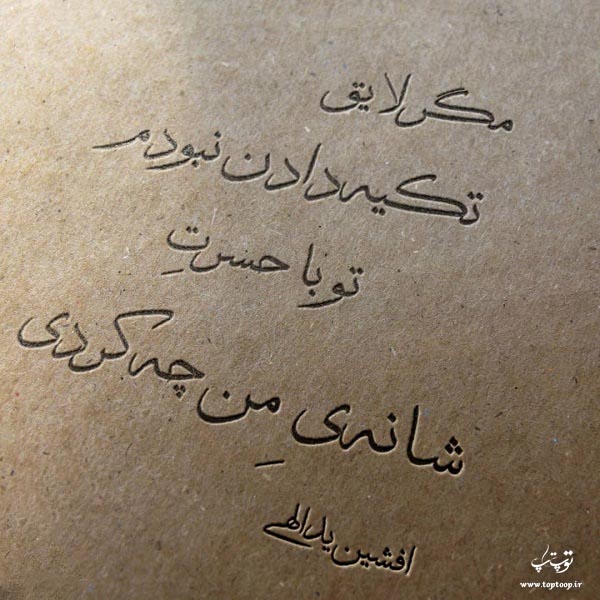 مگر لایق
تکیه دادن نبودم
تو با حسرتِ
شانه‌ی مِن چه کردی
افشین یداللهی
توپتاپ
www.toptoop.ir